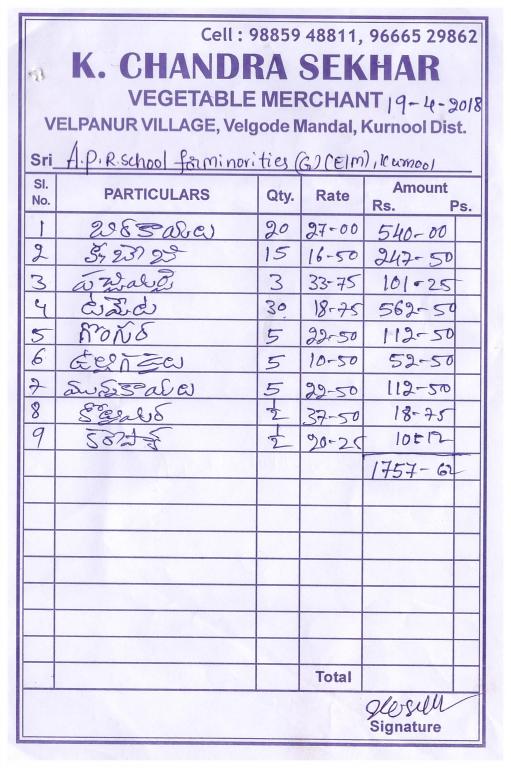 Cell : 98859 48811, 96665 29862
K. CHANDRA SEKHAR
VEGETABLE MERCHANT 19-4-2018
VELPANUR VILLAGE, Velgode Mandal, Kurnool Dist.
Sri A.P.R.school for minorities (G) (E/M), Kurnool
Sl. No. PARTICULARS Qty. Rate Amount Rs. Ps.
1 బీరకాయలు 20 27-00 540-00
2 క్యాబేజి 15 16-50 247-50
3 పచ్చిమిర్చి 3 33-75 101-25
4 టమేట 30 18-75 562-50
5 గోంగూర 5 22-50 112-50
6 ఉల్లిగడ్డలు 5 10-50 52-50
7 మునక్కాయలు 5 22-50 112-50
8 కొత్తిమీర ½ 37-50 18-75
9 కరేపాక్ ½ 20-25 10-12
1757-62
Total
Signature